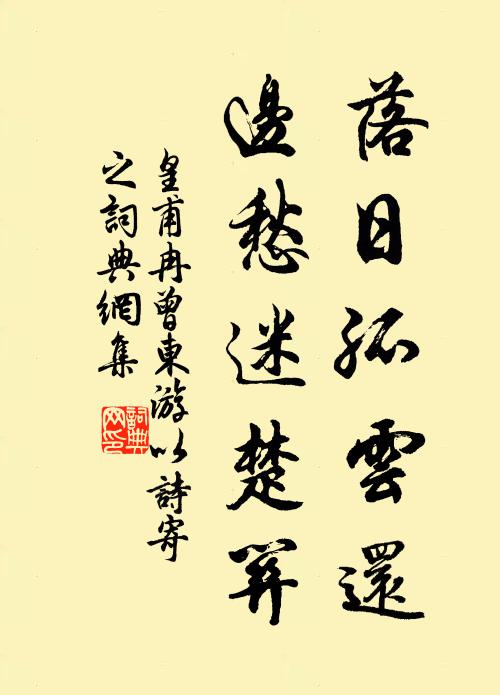 落日孤雲還
邊愁迷楚關
皇甫冉曾東游以詩寄
之詞典網集
詞典
网印